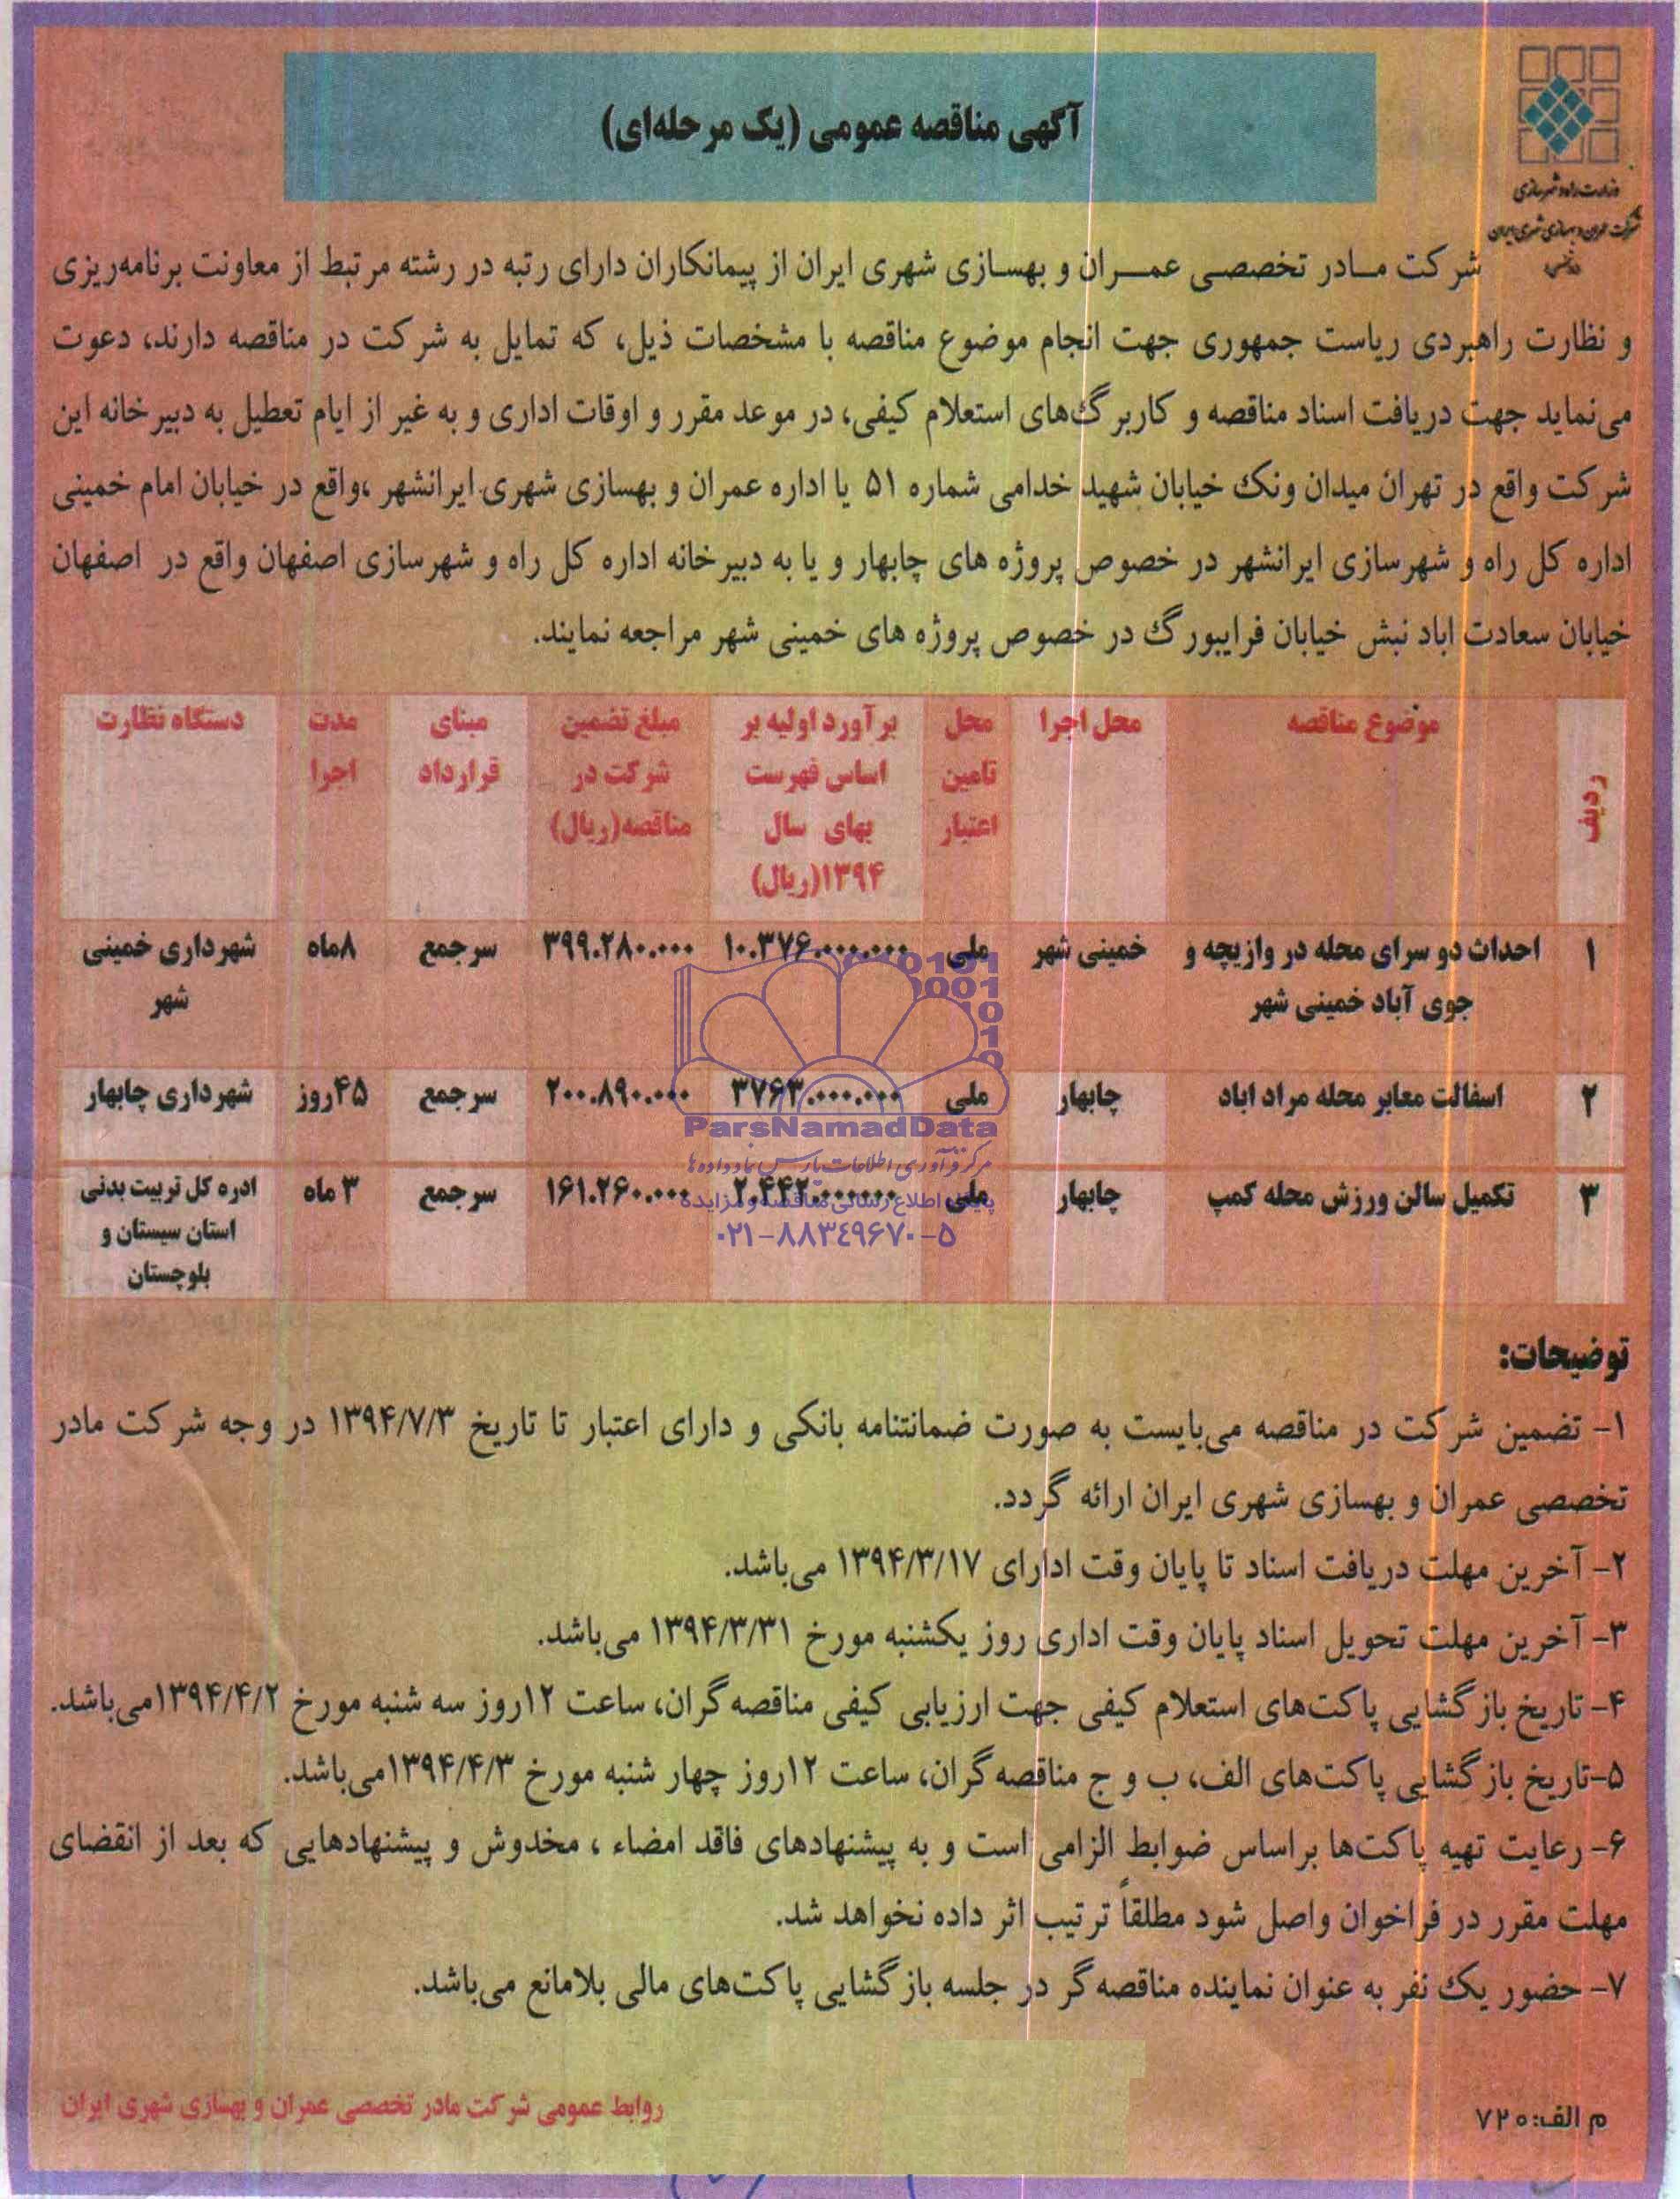 آگهی مناقصه عمومی (یک مرحله‌ای)
وزارت راه و شهرسازی
شرکت عمران و بهسازی شهری ایران
شرکت مـادر تخصصـی عمـــران و بهسـازی شهری ایران از پیمانکاران دارای رتبه در رشته مرتبط از معاونت برنامه‌ریزی
و نظارت راهبردی ریاست جمهوری جهت انجام موضوع مناقصه با مشخصات ذیل، که تمایل به شرکت در مناقصه دارند، دعوت
می‌نماید جهت دریافت اسناد مناقصه و کاربرگ‌های استعلام کیفی، در موعد مقرر و اوقات اداری و به غیر از ایام تعطیل به دبیرخانه این
شرکت واقع در تهران میدان ونک خیابان شهید خدامی شماره ۵۱ یا اداره عمران و بهسازی شهری ایرانشهر ،واقع در خیابان امام خمینی
اداره کل راه و شهرسازی ایرانشهر در خصوص پروژه های چابهار و یا به دبیرخانه اداره کل راه و شهرسازی اصفهان واقع در اصفهان
خیابان سعادت اباد نبش خیابان فرایبورگ در خصوص پروژه های خمینی شهر مراجعه نمایند.
ردیف موضوع مناقصه محل اجرا محل تامین اعتبار برآورد اولیه بر اساس فهرست بهای سال ۱۳۹۴(ریال) مبلغ تضمین شرکت در مناقصه(ریال) مبنای قرارداد مدت اجرا دستگاه نظارت
۱ احداث دو سرای محله در وازیچه و جوی آباد خمینی شهر خمینی شهر ملی ۱۰.۳۷۶.۰۰۰.۰۰۰ ۳۹۹.۲۸۰.۰۰۰ سرجمع ۸ماه شهرداری خمینی شهر
۲ اسفالت معابر محله مراد اباد چابهار ملی ۳۷۶۳.۰۰۰.۰۰۰ ۲۰۰.۸۹۰.۰۰۰ سرجمع ۴۵روز شهرداری چابهار
۳ تکمیل سالن ورزش محله کمپ چابهار ملی ۲.۴۴۲.۰۰۰.۰۰۰ ۱۶۱.۲۶۰.۰۰۰ سرجمع ۳ ماه ادره کل تربیت بدنی استان سیستان و بلوچستان
ParsNamadData
مرکز فرآوری اطلاعات پارس نماد داده ها
پایگاه اطلاع رسانی مناقصه و مزایده
۰۲۱-۸۸۳۴۹۶۷۰-۵
توضیحات:
۱- تضمین شرکت در مناقصه می‌بایست به صورت ضمانتنامه بانکی و دارای اعتبار تا تاریخ ۱۳۹۴/۷/۳ در وجه شرکت مادر
تخصصی عمران و بهسازی شهری ایران ارائه گردد.
۲- آخرین مهلت دریافت اسناد تا پایان وقت ادارای ۱۳۹۴/۳/۱۷ می‌باشد.
۳- آخرین مهلت تحویل اسناد پایان وقت اداری روز یکشنبه مورخ ۱۳۹۴/۳/۳۱ می‌باشد.
۴- تاریخ بازگشایی پاکت‌های استعلام کیفی جهت ارزیابی کیفی مناقصه‌گران، ساعت ۱۲روز سه شنبه مورخ ۱۳۹۴/۴/۲می‌باشد.
۵-تاریخ بازگشایی پاکت‌های الف، ب و ج مناقصه‌گران، ساعت ۱۲روز چهار شنبه مورخ ۱۳۹۴/۴/۳می‌باشد.
۶- رعایت تهیه پاکت‌ها براساس ضوابط الزامی است و به پیشنهادهای فاقد امضاء ، مخدوش و پیشنهادهایی که بعد از انقضای
مهلت مقرر در فراخوان واصل شود مطلقاً ترتیب اثر داده نخواهد شد.
۷- حضور یک نفر به عنوان نماینده مناقصه‌گر در جلسه بازگشایی پاکت‌های مالی بلامانع می‌باشد.
م الف:۷۲۰
روابط عمومی شرکت مادر تخصصی عمران و بهسازی شهری ایران